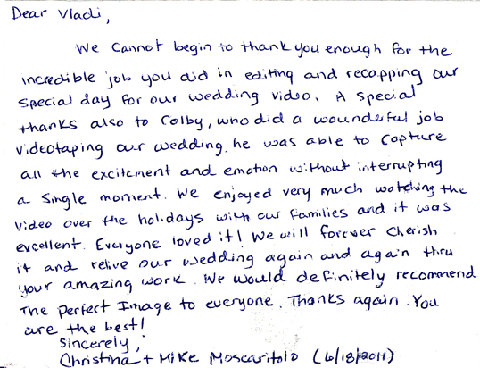 Dear Vladi,
We cannot begin to thank you enough for the
incredible job you did in editing and recapping our
special day for our wedding video. A special
thanks also to Colby, who did a wounderful job
videotaping our wedding. he was able to capture
all the excitement and emotion without interrupting
a single moment. We enjoyed very much watching the
video over the holidays with our families and it was
excellent. Everyone loved it! We will forever cherish
it and relive our wedding again and again thru
your amazing work. We would definitely recommend
The Perfect Image to everyone. Thanks again. You
are the best!
Sincerely,
Christina + Mike Moscaritolo (6/18/2011)